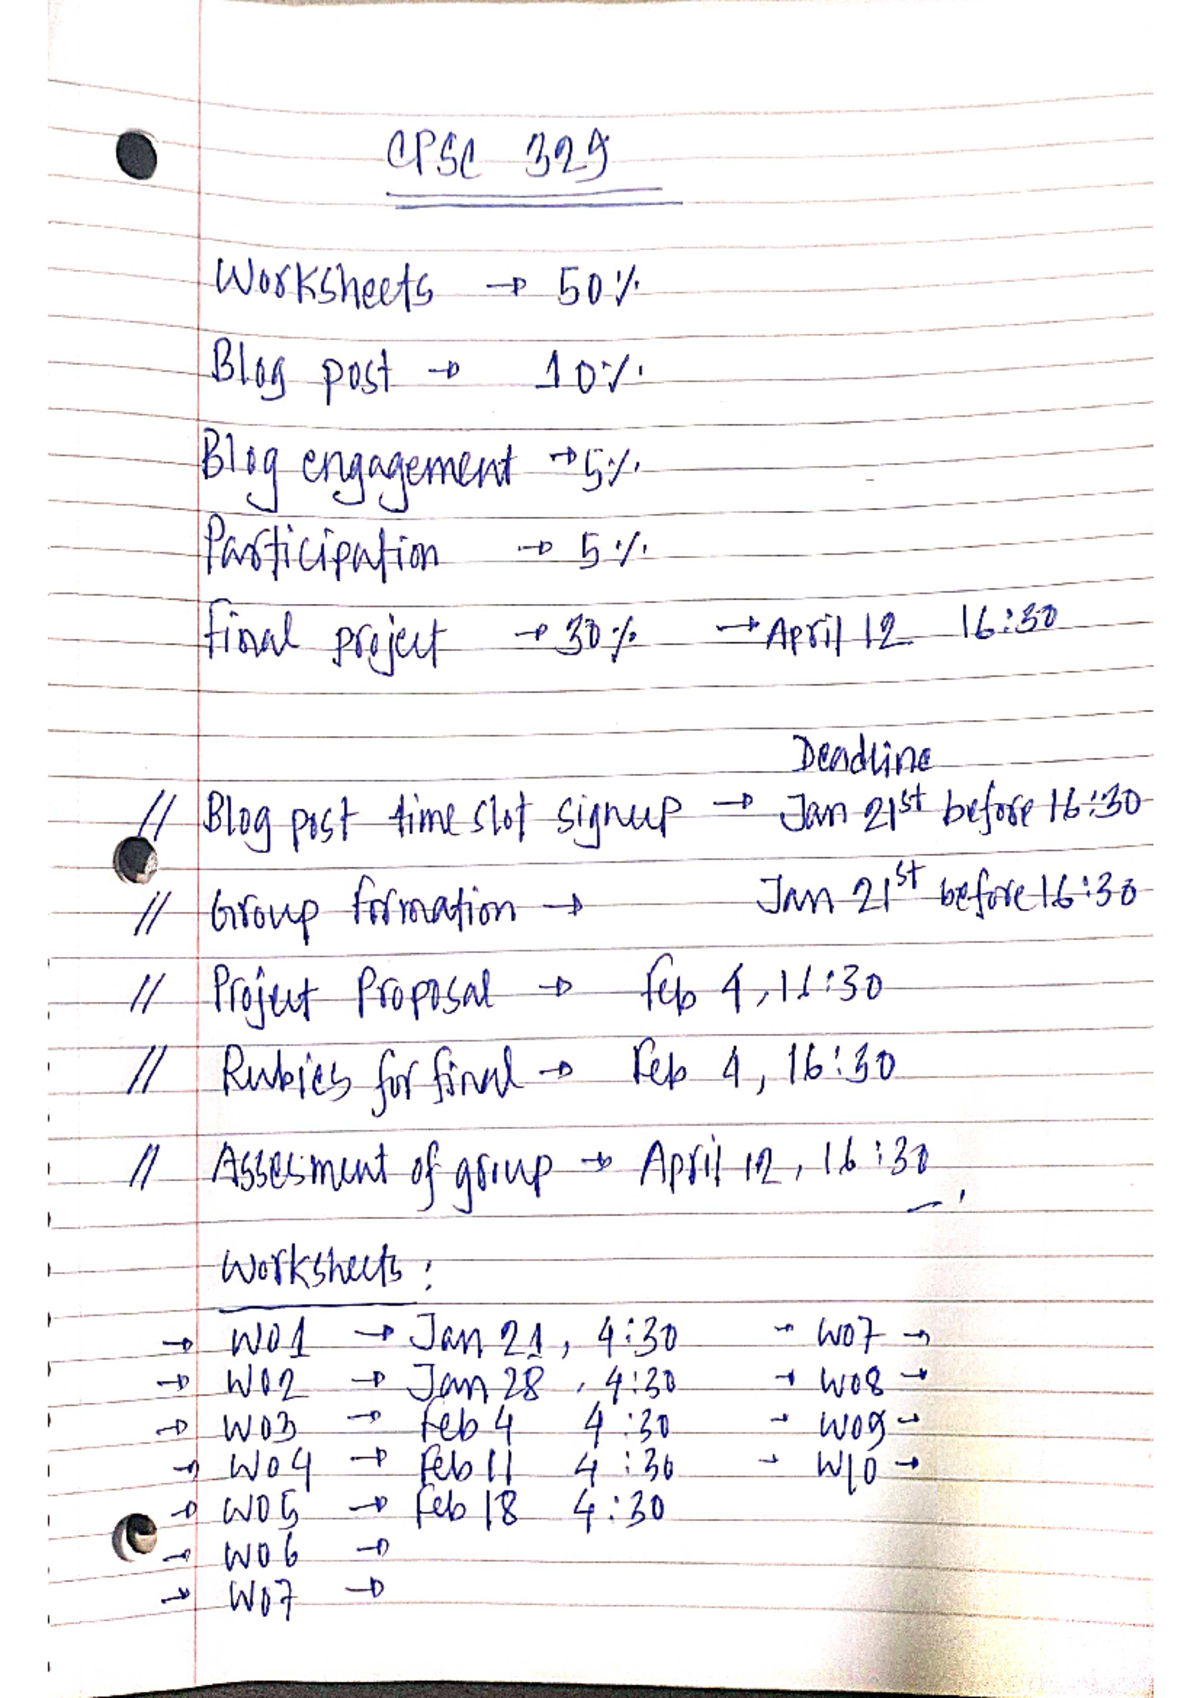 CPSC 329
Worksheets → 50%
Blog post → 10%
Blog engagement → 5%
Participation → 5%
final project → 30% → April 12 16:30
Deadline
// Blog post time slot signup → Jan 21st before 16:30
// Group formation → Jan 21st before 16:30
// Project Proposal → feb 4, 16:30
// Rubics for final → Feb 4, 16:30
// Assesment of group → April 12, 16:30
Worksheets:
→ W01 → Jan 21, 4:30 → W07 →
→ W02 → Jan 28, 4:30 → W08 →
→ W03 → feb 4 4:30 → W09 →
→ W04 → feb 11 4:30 → W10 →
→ W05 → feb 18 4:30
→ W06 →
→ W07 →